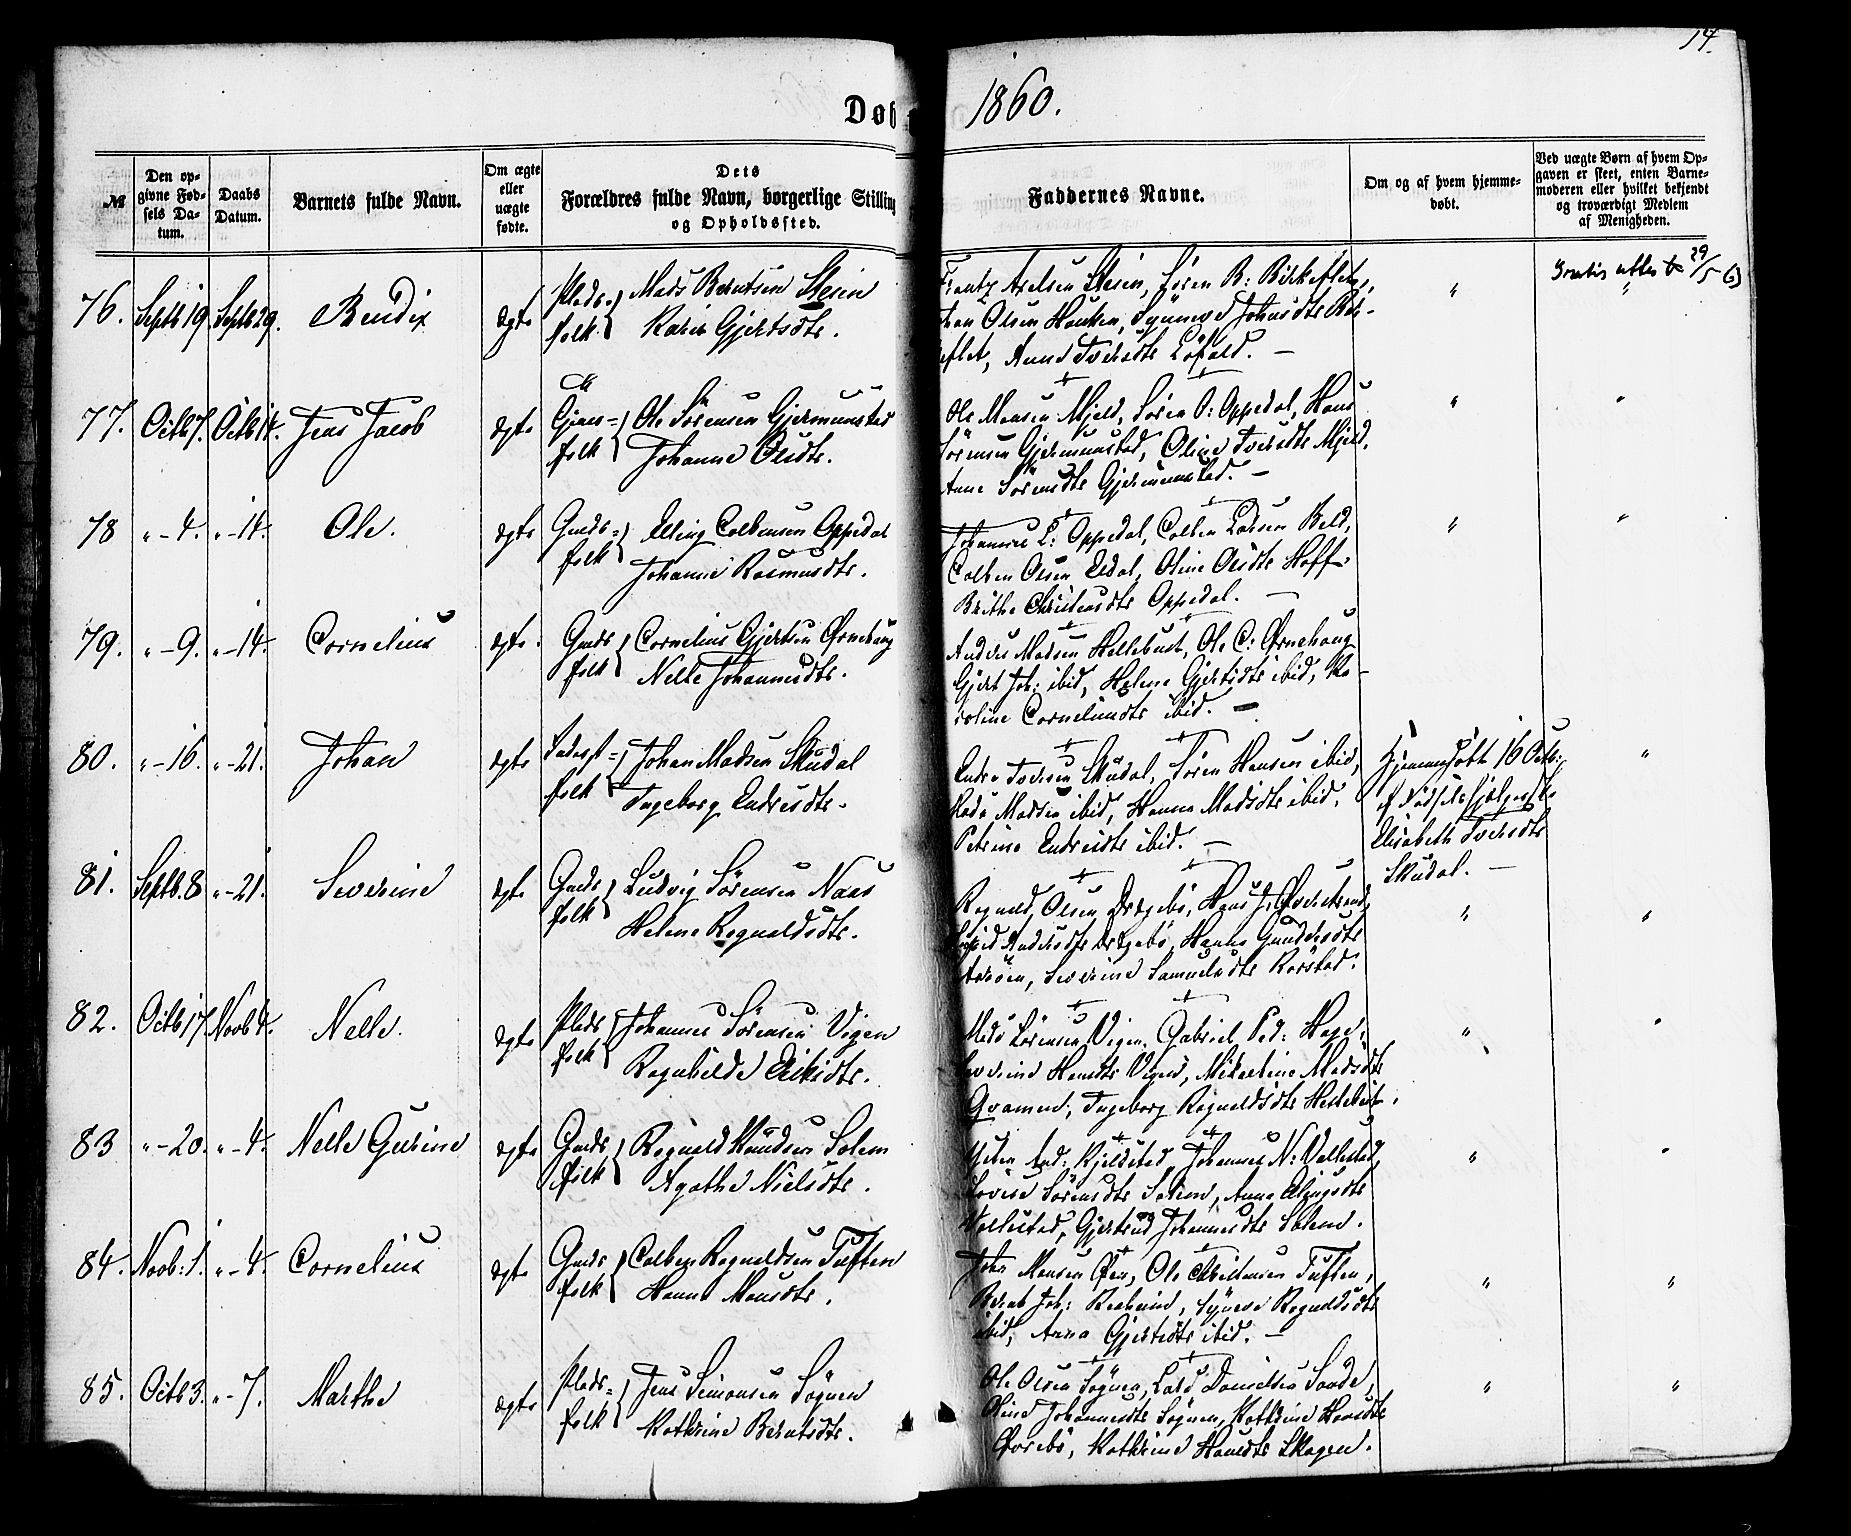 14.
Døb
1860.
№
Den opgivne Fødsels Datum.
Daabs Datum.
Barnets fulde Navn.
Om ægte eller uægte fødte.
Dets Forældres fulde Navn, borgerlige Stilling og Opholdssted.
Faddernes Navne.
Om og af hvem hjemmedøbt.
Ved uægte Børn af hvem Opgaven er skeet, enten Barnemoderen eller hvilket bekjendt og troværdigt Medlem af Menigheden.
76. Septb 19 Septb 29. Bendix ægte Plads-folk Mads Berntsen Steien
Karin Gjertsdtr.
Olsen Søren B: Birkeflet,
Olsen Hauken, Synneve Johnsdtr
Anne Iversdtr Løfald. —
"
29/5 63
77. Octb 7. Octb 14. Jens Jacob ægte folk Ole Sörensen Gjermunstad
Johanne Olsdtr.
Ole Monsen Mjeld, Sören O: Oppedal, Hans
Sörensen Gjermunstad, Oline Iversdtr Mjeld,
Anne Sörensdtr Gjermunstad. —
" "
78 " – 4. " – 14. Ole. ægte Gmds-folk Elling Colbensen Oppedal
Johanne Rasmusdtr.
Johannes L: Oppedal, Colben Larsen Beld,
Colben Olsen Eldal, Oline Olsdtr Hoff
Brithe Christensdtr Oppedal. —
" "
79. " – 9. " – 14. Cornelius ægte. Gmds folk Cornelius Gjertsen Ørnehaug
Nelle Johannesdtr.
Anders Madsen Hellebust, Ole C: Ørnehaug
Gjert Joh: ibid, Helene Gjertsdtr ibid, Ka-
roline Corneliusdtr ibid. —
80. " – 16. " – 21. Johan ægte folk Johan Madsen Skudal
Ingeborg Endresdtr.
Endre Iversen Skudal, Sören Hansen ibid,
Mads Madsen ibid, Hanna Madsdtr ibid,
Petrine Endresdtr ibid. —
Hjemmedøbt 16 Octb:
af Fødselshjælperske
Elisabeth Iversdtr
Skudal. —
"
81. Septb. 8 " – 21. Severine ægte Gmds folk Ludvig Sörensen Naas
Helene Rognaldsdtr.
Rognald Olsen Drægebö, Hans J:
Andersdtr Drægebö, Hanna Gundersdtr
Severine Samuelsdtr Rörstad.
" "
82. Octb 17 Novb 4. Nelle. ægte Plads folk Johannes Sörensen Vigen
Ragnhilde Eriksdtr.
Mads Sörensen Vigen, Gabriel Ped: Hage
Severine Hansdtr Vigen, Mikaeline Madsdtr
Qvamen, Ingeborg Rognaldsdtr Hellebust.
" "
83 " – 20. " – 4. Nelle Gurine ægte Gmds folk Rognald Knudsen Solem
Agathe Nielsdtr.
And: Kjelstad, Johannes N: Vallestad,
Lovise Sörensdtr Solem, Anne
Vallestad, Gjertrud Johannesdtr Solem.
" "
84. Novb: 1. " – 4. Cornelius ægte Gmds folk Colben Rognaldsen Tuften
Hanna Monsdtr.
John Monsen Øen, Ole Christensen Tuften,
Bernt Joh: Synneve Rognaldsdtr
ibid, Anna Gjertsdtr ibid. —
" "
85. Octb 3. " – 7. Marthe ægte Plads-folk Jens Simonsen Sögnen
Kathrine Berntsdtr.
Ole Olsen Sögnen, Lars Danielsen Sande,
Oline Johannesdtr Sögnen, Kathrine Hansdtr
Kathrine Hansdtr Skogen.
" "